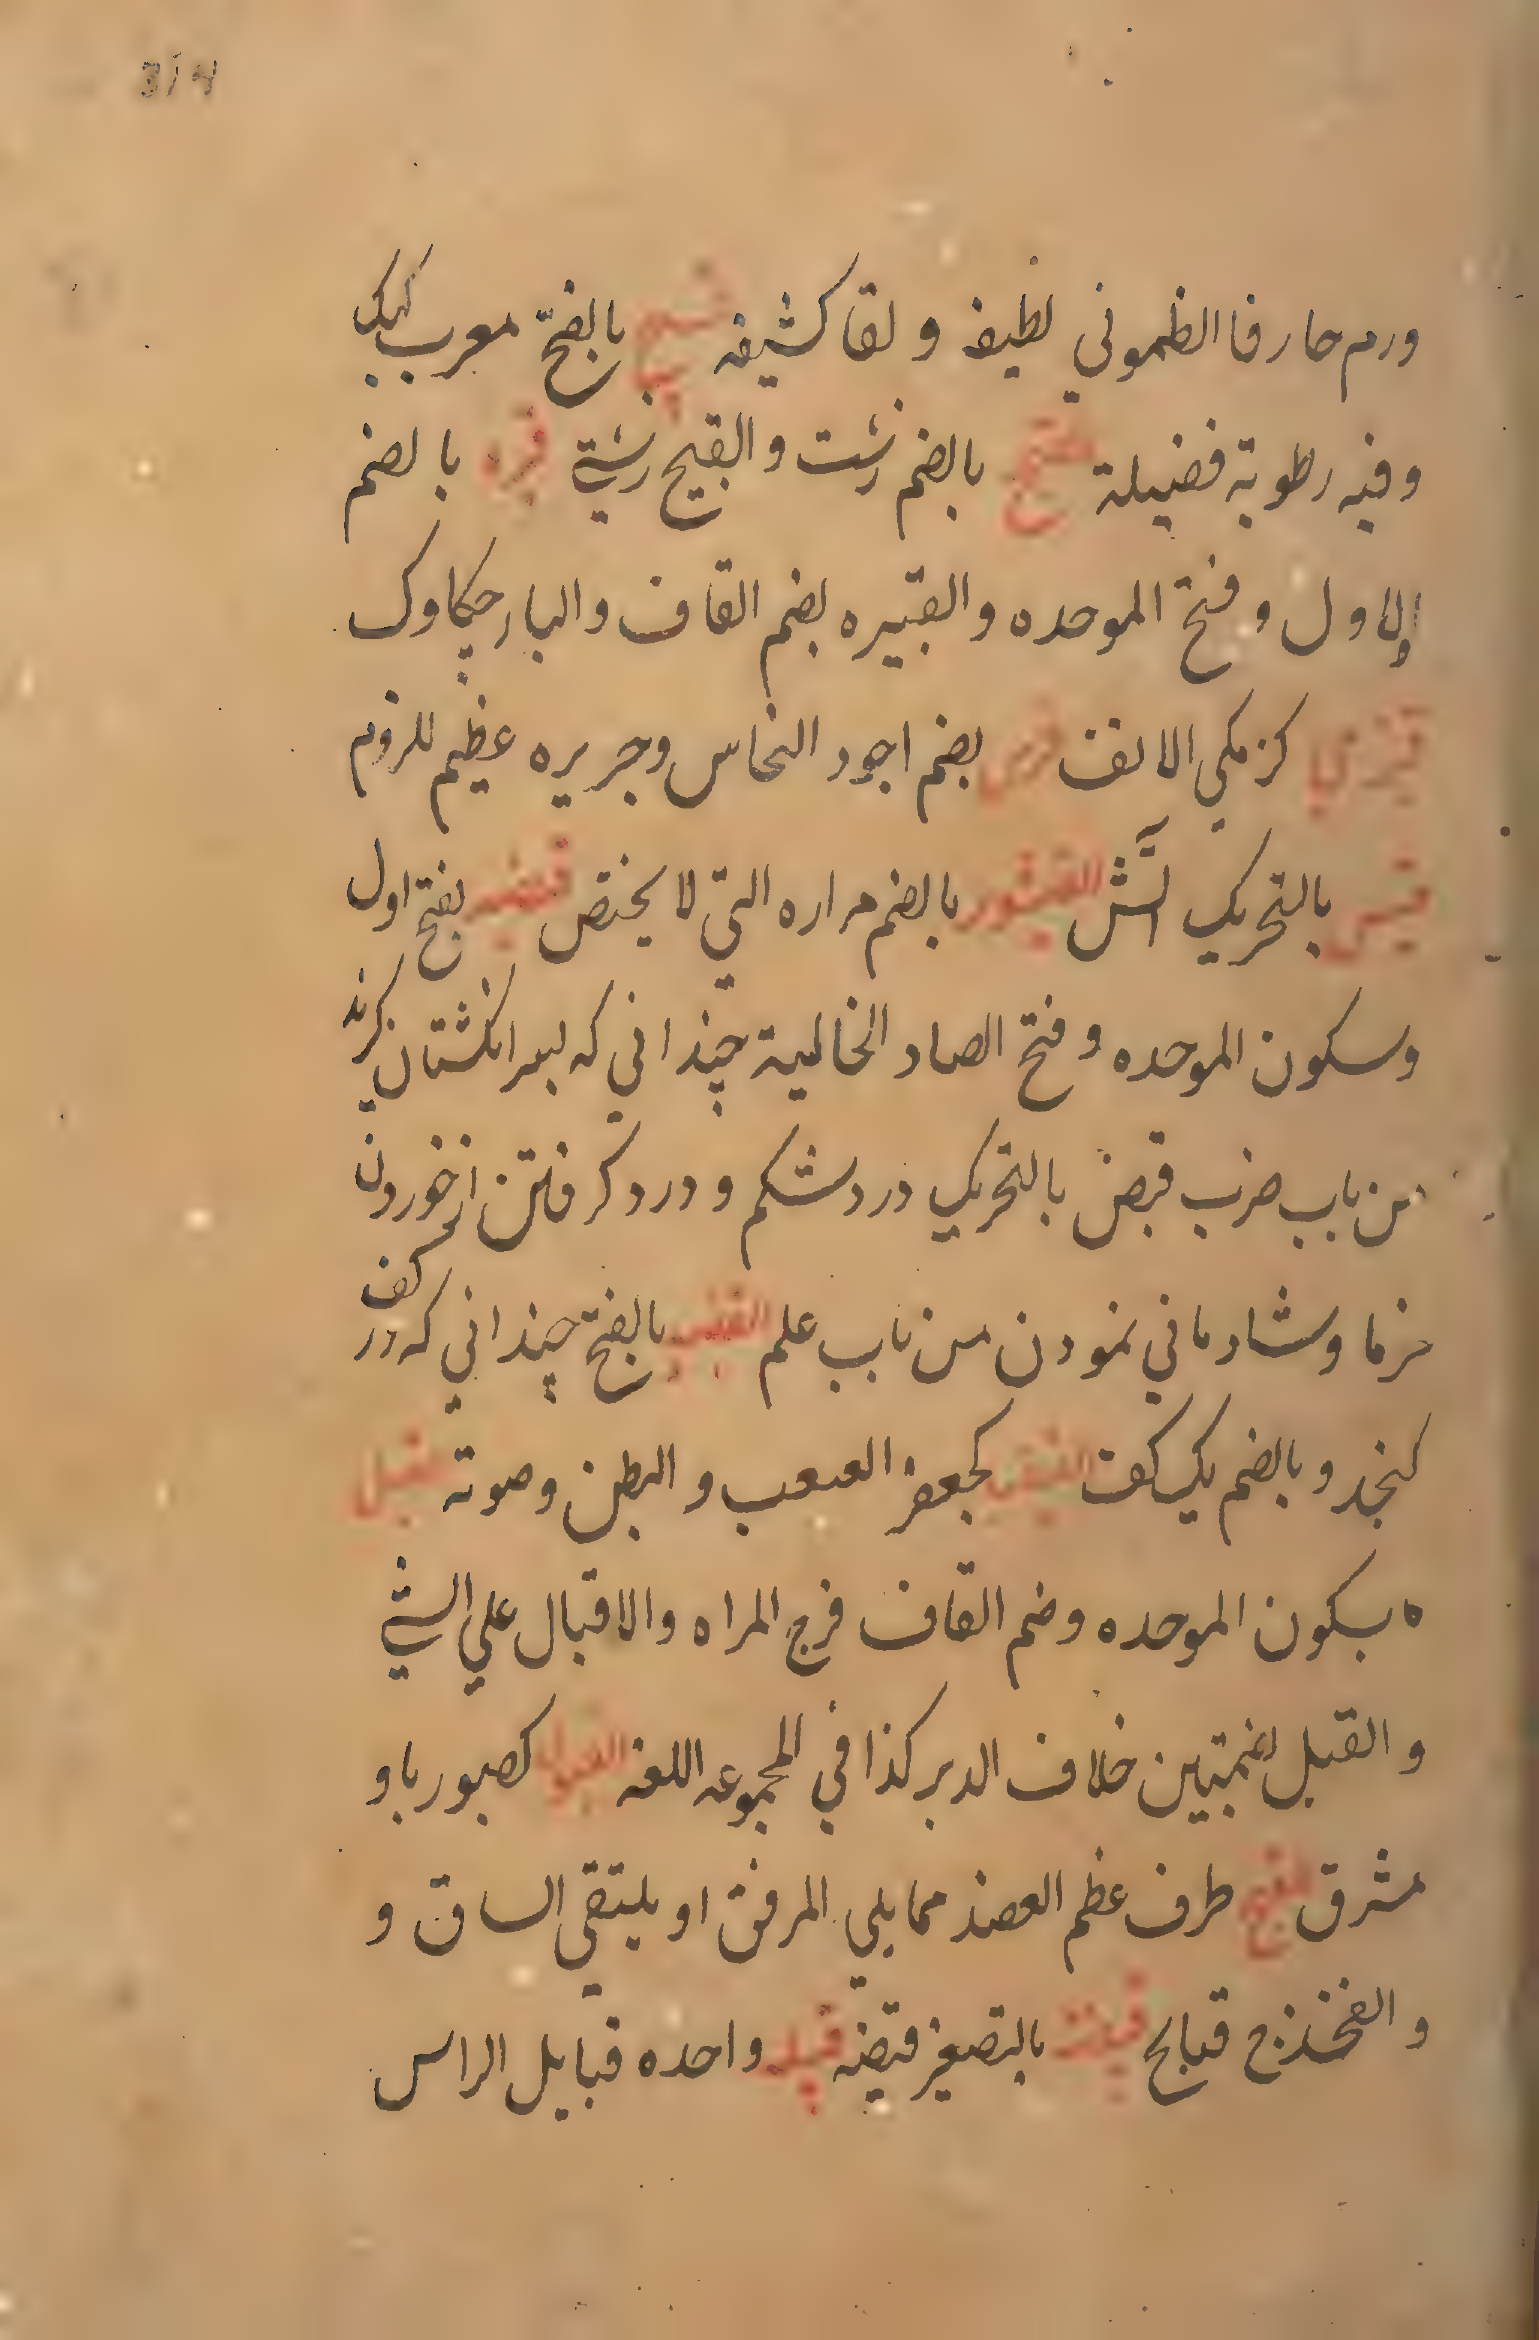 314
ورم حار فا الظموني لطيف و لقا كشيفه بالفتح معرب كبك
وفيه رطوبة فضيلة بالضم زشت والقبيح زشتي قبره بالضم
الاول و فتح الموحده والقبيره بضم القاف والباء چكاوك
كز مكي الانف بضم اجود النحاس وجريره عظيم للروم
قبس بالتحريك اتش بالضم مراره التي لا يختص قبضه بفتح اول
وسكون الموحده و فتح الصاد الخاليه چنداني كه بسر انكشتان كرند
من باب ضرب قبض بالتحريك درد شكم و درد كرفتن از خوردن
خرما و شادماني نمودن من باب علم القبض بالفتح چنداني كه در كف
كنجد و بالضم يك كف كجعفر العبعب و البطن و صوته قبل
بسكون الموحده و ضم القاف فرج المراه والاقبال علي الشي
و القبل بضمتين خلاف الدبر كذا في المجموعه اللغه القبول كصبور باو
مشرق قبيح طرف عظم العضد مما يلي المرفق او ملتقي الساق و
و الفخذ ج قبايح بالتصغير قبضه قبيله واحده قبايل الراس